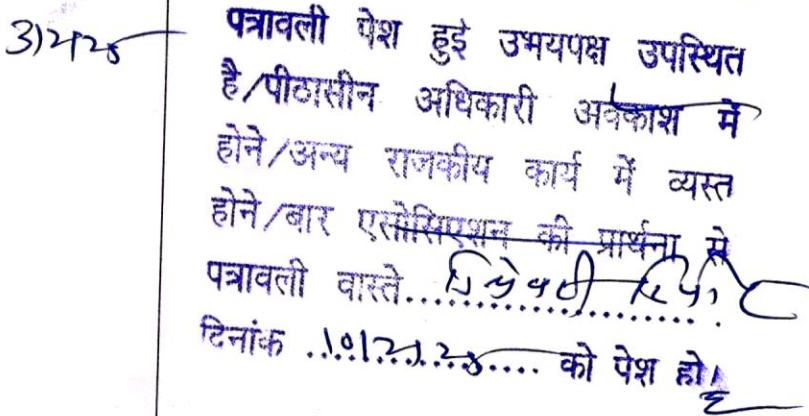 3/2/25
पत्रावली पेश हुई उभयपक्ष उपस्थित
है/पीठासीन अधिकारी अवकाश में
होने/अन्य राजकीय कार्य में व्यस्त
होने/बार एसोसिएशन की प्रार्थना से
पत्रावली वास्ते....................
दिनांक ...10/2/25.... को पेश हो।